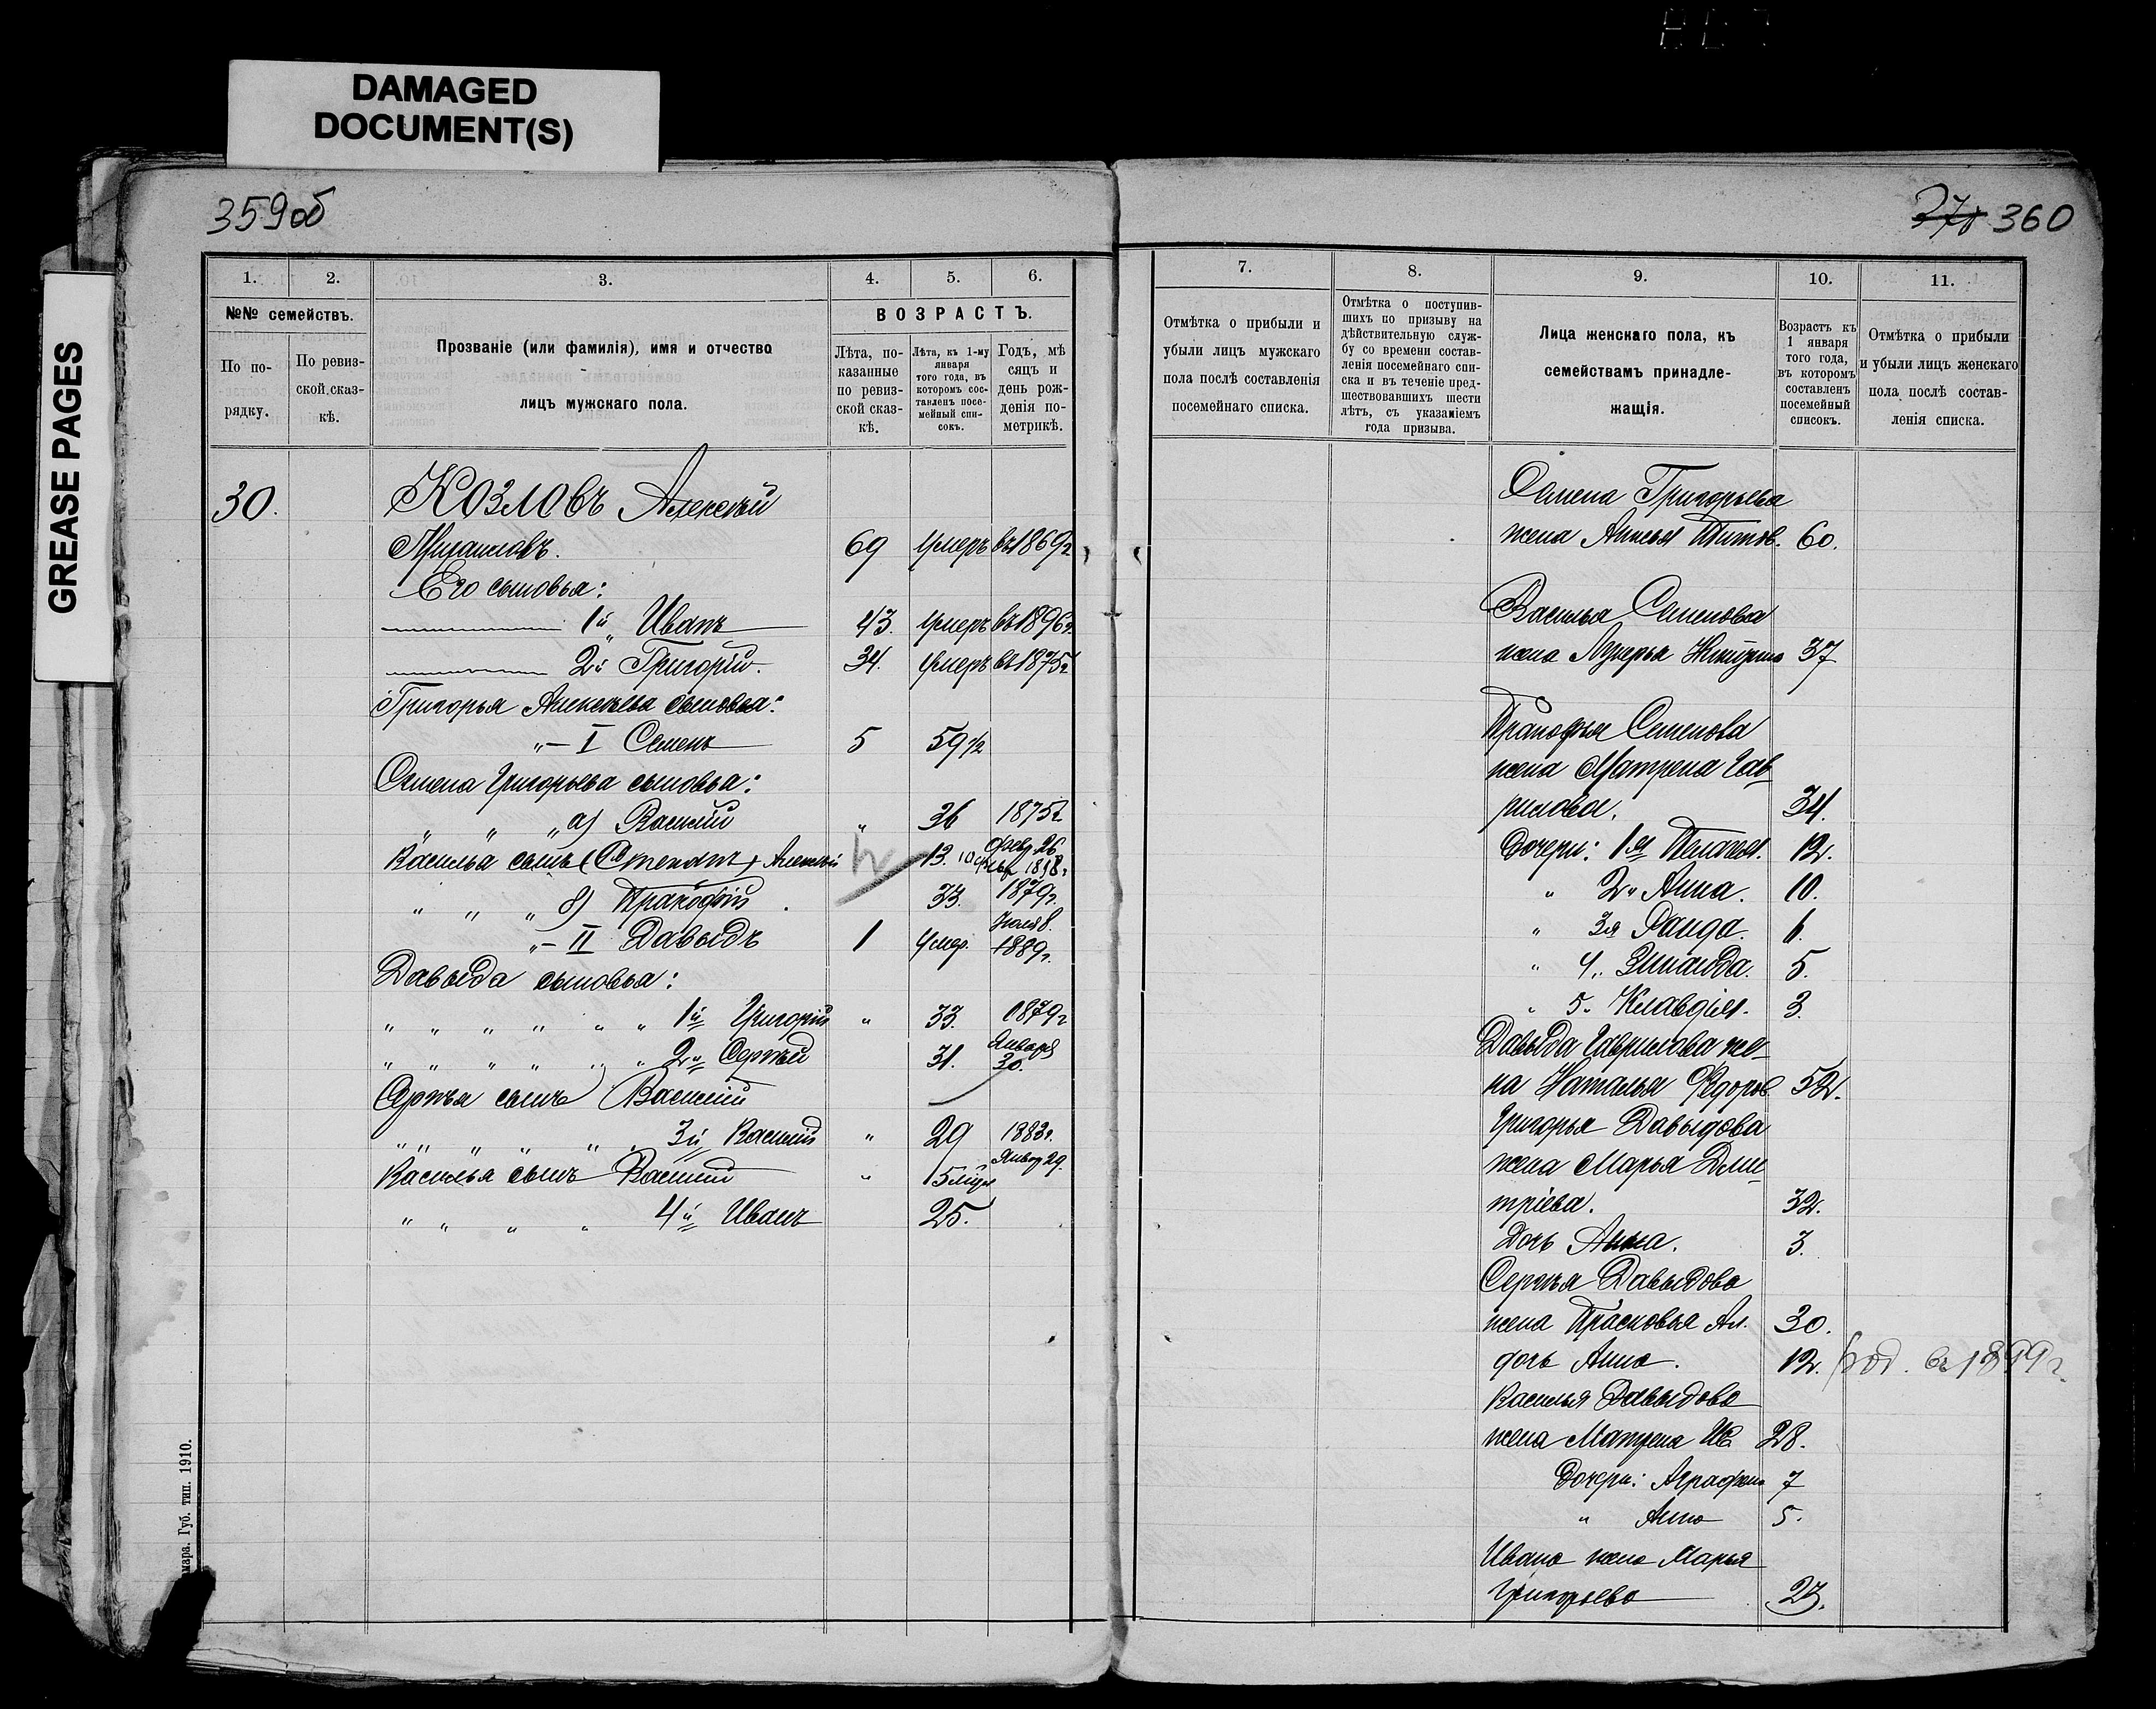 DAMAGED
DOCUMENT(S)
GREASE PAGES
359об
1. 2. 3. 4. 5. 6.
№№ семействъ.
ВОЗРАСТЪ.
По по-
рядку.
По ревиз-
ской сказ-
кѣ.
Прозваніе (или фамилія), имя и отчество
лицъ мужскаго пола.
Лѣта, по-
казанные
по ревиз-
ской сказ-
кѣ.
Лѣта, къ 1-му
января
того года, въ
которомъ сос-
тавленъ посе-
мейный спи-
сокъ.
Годъ, мѣ
сяцъ и
день рож-
денія по-
метрикѣ.
30. Козловъ Алексѣй
69 умеръ въ 1869г
Его сыновья:
1й Иванъ 43. умеръ въ 1896г.
2й Григорій. 34. умеръ въ 1875г
Григорья Алексѣева сыновья:
„— I Семенъ 5 59 1/2
Семена Григорьева сыновья:
„ „ „ а) Василій „ 36 1875г
Василья сынъ (Степанъ) Алексѣй 13.
Февр. 26
1898г
„ „ „ б) Пракофій 33. 1879г.
Іюля 8.
„— II Давыдъ 1 умер. 1889г.
Давыда сыновья:
„ „ „ „ „ „ 1й Григорій „ 33. 1879г
„ „ „ „ „ „ 2й Сергѣй 31.
Января
30.
Сергѣя сынъ Василій
„ „ „ „ „ „ 3й Василій „ 29 1883г.
Январ 29.
Василья сынъ Василій „ 5 мѣс
„ „ „ „ 4й Иванъ 25.
мара. Губ. тип. 1910.
370 360
7. 8. 9. 10. 11.
Отмѣтка о прибыли и
убыли лицъ мужскаго
пола послѣ составленія
посемейнаго списка.
Отмѣтка о поступив-
шихъ по призыву на
дѣйствительную служ-
бу со времени состав-
ленія посемейнаго спи-
ска и въ теченіе пред-
шествовавшихъ шести
лѣтъ, съ указаніемъ
года призыва.
Лица женскаго пола, къ
семействамъ принадле-
жащія.
Возрастъ къ
1 января
того года,
въ которомъ
составленъ
посемейный
списокъ.
Отмѣтка о прибыли
и убыли лицъ женскаго
пола послѣ состав-
ленія списка.
Семена Григорьева
жена Аксинья Титов. 60.
Василья Семенова
жена Лукерья 37
Пракофья Семенова
жена Матрена Гав
рилова. 34.
Дочери: 1я Пелагея. 12.
„ 2я Анна. 10.
„ 3я 6.
„ 4. Зинаида. 5.
„ 5. Клавдія. 3.
Давыда Гаврилова же-
на Наталья Ѳедоров. 52.
Григорья Давыдова
жена Марья Дми-
тріева. 32.
Дочь Анна. 3.
Сергѣя Давыдова
жена Прасковья Ал. 30.
дочь Анна. 12. род. въ 1899г.
Василья Давыдова
жена Матрена Ив. 28.
Дочери: Аграфена 7
„ Анна 5.
Ивана жена Марья
Григорьева 23.